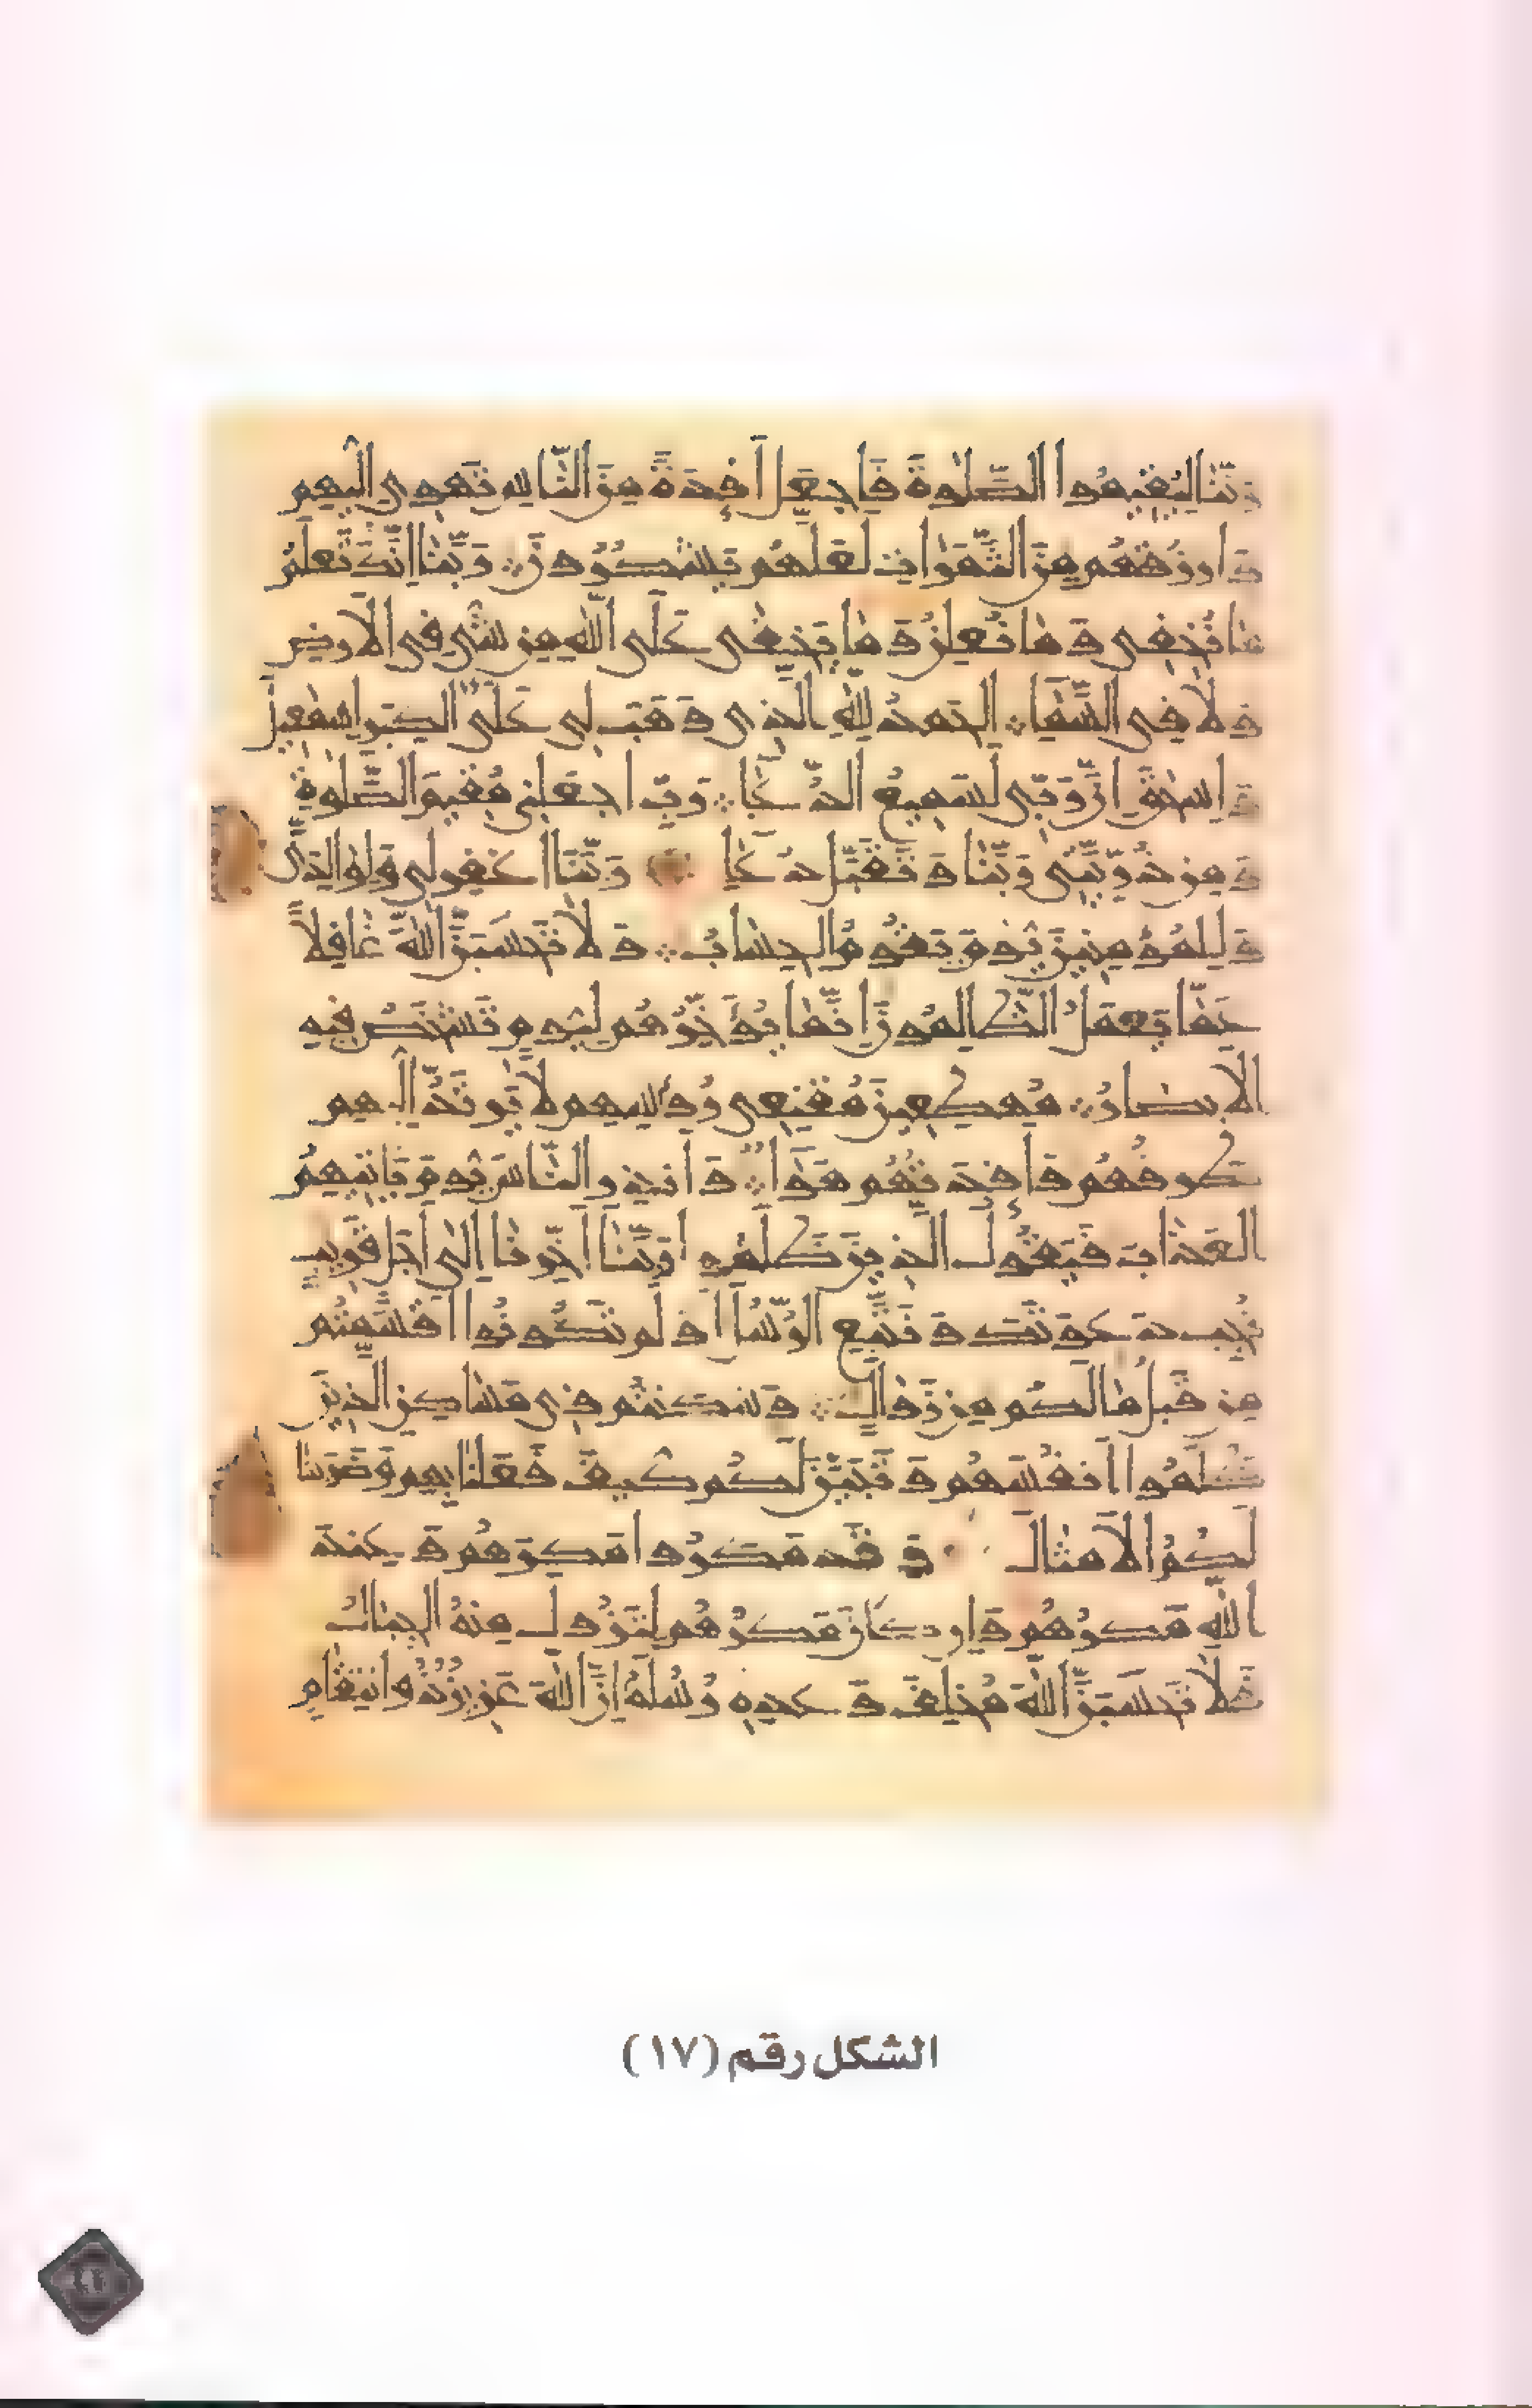 ربنا ليقيموا الصلوة فاجعل أفئدة من الناس تهوى إليهم
وارزقهم من الثمرات لعلهم يشكرون ∴ ربنا إنك تعلم
ما نخفى وما نعلن وما يخفى على الله من شىء فى الأرض
ولا فى السماء ∴ الحمد لله الذى وهب لى على الكبر إسمعيل
وإسحق إن ربى لسميع الدعاء ∴ رب اجعلنى مقيم الصلوة
ومن ذريتى ربنا وتقبل دعاء ربنا اغفر لى ولوالدى
وللمؤمنين يوم يقوم الحساب ∴ ولا تحسبن الله غافلا
عما يعمل الظالمون إنما يؤخرهم ليوم تشخص فيه
الأبصار ∴ مهطعين مقنعى رءوسهم لا يرتد إليهم
طرفهم وأفئدتهم هواء ∴ وأنذر الناس يوم يأتيهم
العذاب فيقول الذين ظلموا ربنا أخرنا إلى أجل قريب
نجب دعوتك ونتبع الرسل أو لم تكونوا أقسمتم
من قبل ما لكم من زوال ∴ وسكنتم فى مساكن الذين
ظلموا أنفسهم وتبين لكم كيف فعلنا بهم وضربنا
لكم الأمثال ∴ وقد مكروا مكرهم وعند
الله مكرهم وإن كان مكرهم لتزول منه الجبال
فلا تحسبن الله مخلف وعده رسله إن الله عزيز ذو انتقام
الشكل رقم (١٧)